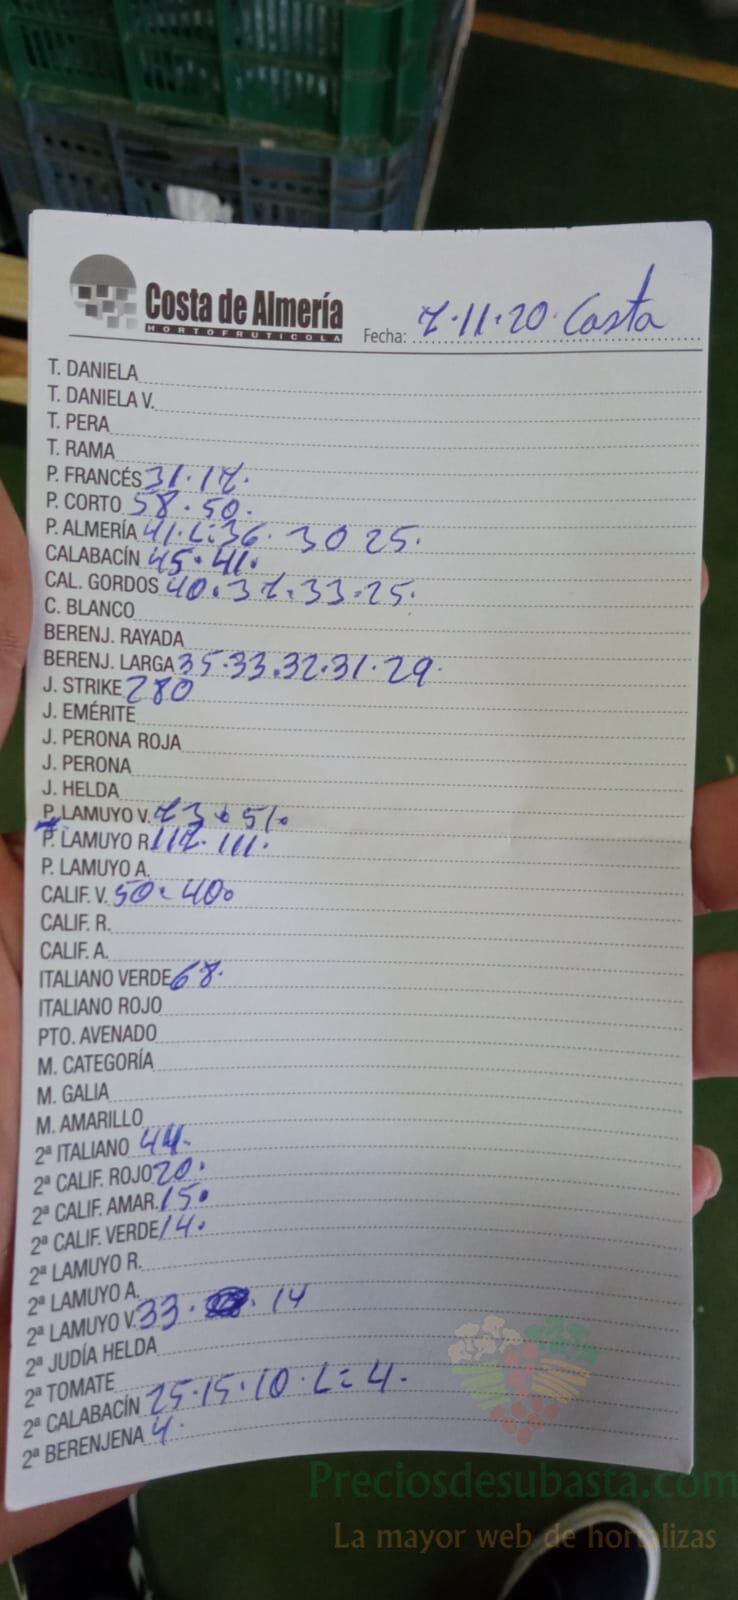 Costa de Almería
HORTOFRUTICOLA
Fecha: 7·11·20· Costa
T. DANIELA
T. DANIELA V.
T. PERA
T. RAMA
P. FRANCÉS 31·17·
P. CORTO 58·50·
P. ALMERÍA 41·L:36·30 25·
CALABACÍN 45·41·
CAL. GORDOS 40·37·33·25·
C. BLANCO
BERENJ. RAYADA
BERENJ. LARGA 35·33·32·31·29·
J. STRIKE 280
J. EMÉRITE
J. PERONA ROJA
J. PERONA
J. HELDA
P. LAMUYO V. 73·51·
P. LAMUYO R 117·111·
P. LAMUYO A.
CALIF. V. 50·40·
CALIF. R.
CALIF. A.
ITALIANO VERDE 68·
ITALIANO ROJO
PTO. AVENADO
M. CATEGORÍA
M. GALIA
M. AMARILLO
2ª ITALIANO 44·
2ª CALIF. ROJO 20·
2ª CALIF. AMAR. 15·
2ª CALIF. VERDE 14·
2ª LAMUYO R.
2ª LAMUYO A.
2ª LAMUYO V. 33· · 14
2ª JUDÍA HELDA
2ª TOMATE
2ª CALABACÍN 25·15·10·L=4·
2ª BERENJENA 4·
Preciosdesubasta.com
La mayor web de hortalizas